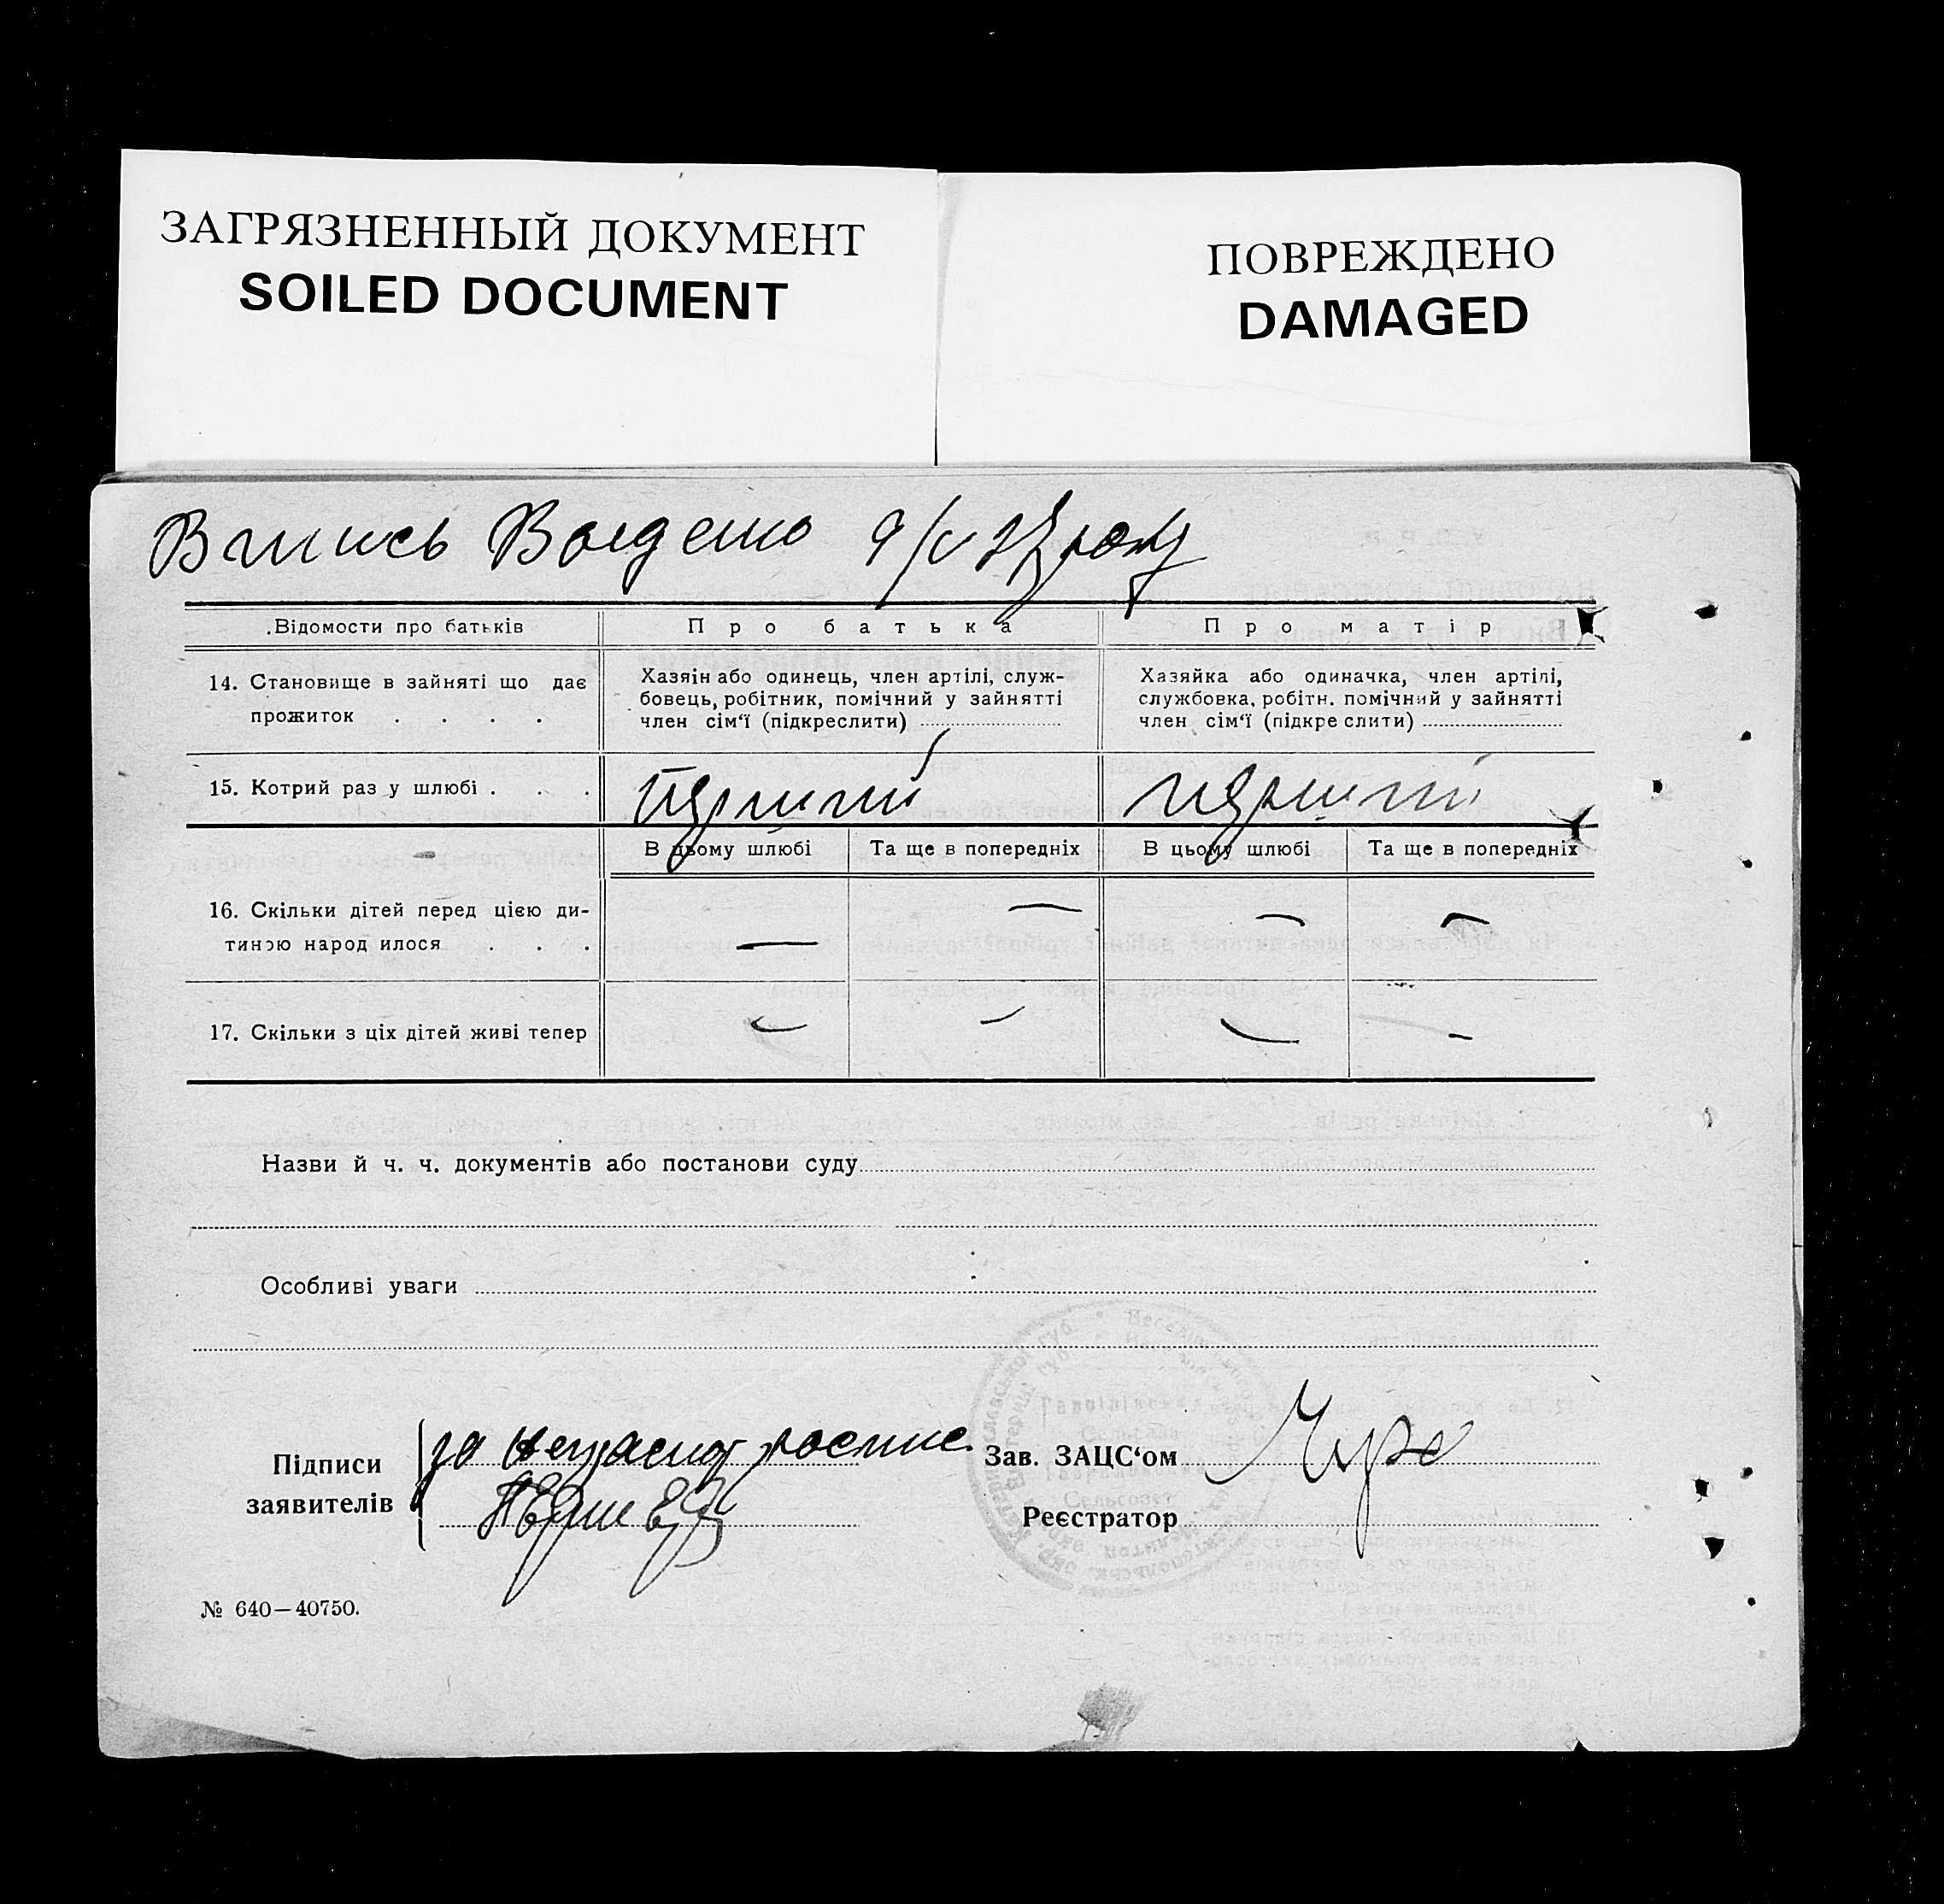 ЗАГРЯЗНЕННЫЙ ДОКУМЕНТ
SOILED DOCUMENT
ПОВРЕЖДЕНО
DAMAGED
Відомости про батьків
Про батька
Про матір
14. Становище в зайняті що дає
прожиток . . . .
Хазяін або одинець, член артілі, служ-
бовець, робітник, помічний у зайнятті
член сім‘ї (підкреслити)
Хазяйка або одиначка, член артілі,
службовка, робітн. помічний у зайнятті
член сім‘ї (підкре слити)
15. Котрий раз у шлюбі . . .
перший
перший
В цьому шлюбі
Та ще в попередніх
В цьому шлюбі
Та ще в попередніх
16. Скільки дітей перед цією ди-
тиною народ илося . . .
— — — —
17. Скільки з ціх дітей живі тепер
— — — —
Назви й ч. ч. документів або постанови суду
Особливі уваги
Підписи
заявителів
за
Зав. ЗАЦС‘ом
Реєстратор
№ 640—40750.